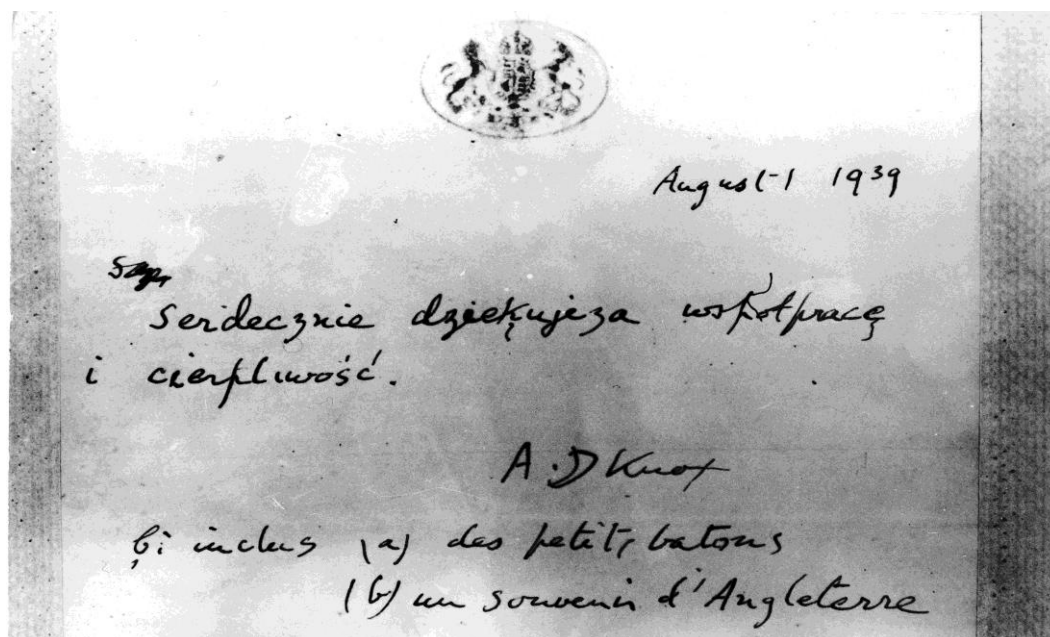 August 1 1939
Serdecznie dziękuje za współpracę
i cierpliwość.
A.D Knox
Çi inclus (a) des petits batons
(b) un souvenir d'Angleterre